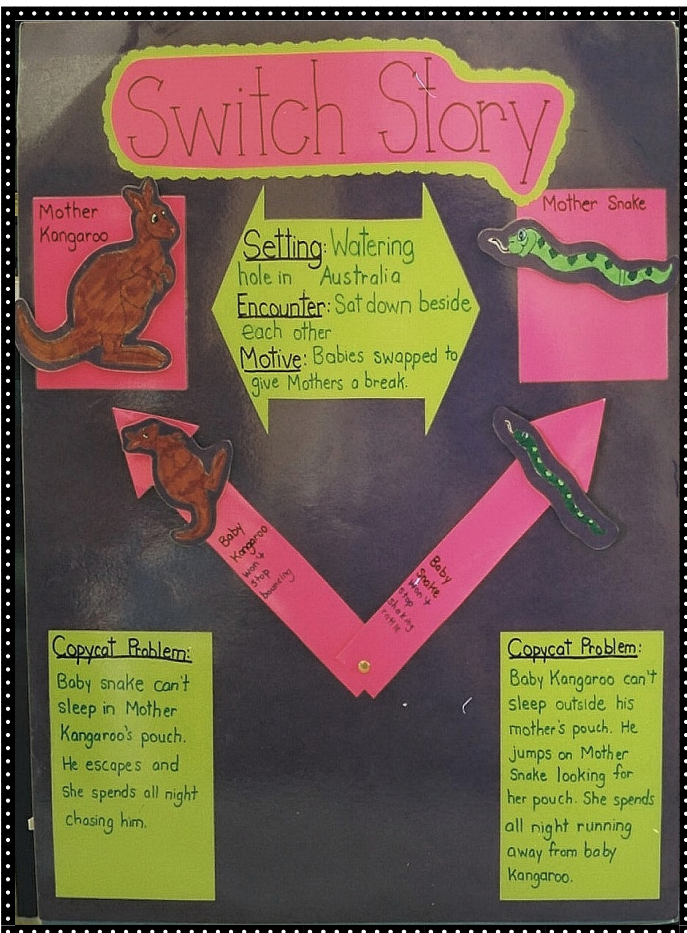 Switch Story
Mother
Kangaroo
Mother Snake
Setting: Watering
hole in Australia
Encounter: Sat down beside
each other
Motive: Babies swapped to
give Mothers a break.
Baby
Kangaroo
won't
stop
bouncing
Baby
Snake
won't
stop
shaking
rattle
Copycat Problem:
Baby snake can't
sleep in Mother
Kangaroo's pouch.
He escapes and
she spends all night
chasing him.
Copycat Problem:
Baby Kangaroo can't
sleep outside his
mother's pouch. He
jumps on Mother
Snake looking for
her pouch. She spends
all night running
away from baby
Kangaroo.